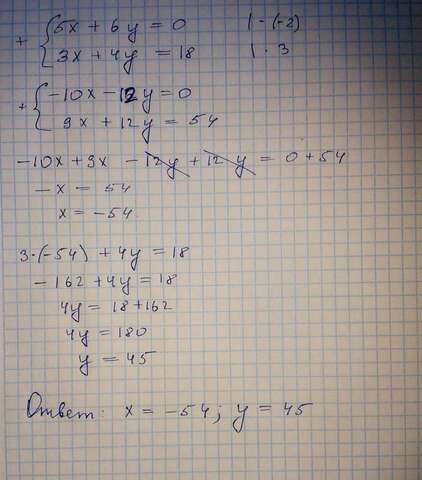 + { 5x + 6y = 0 | · (-2)
3x + 4y = 18 | · 3
+ { -10x - 12y = 0
9x + 12y = 54
-10x + 9x - 12y + 12y = 0 + 54
-x = 54
x = -54
3·(-54) + 4y = 18
-162 + 4y = 18
4y = 18 + 162
4y = 180
y = 45
Ответ: x = -54; y = 45